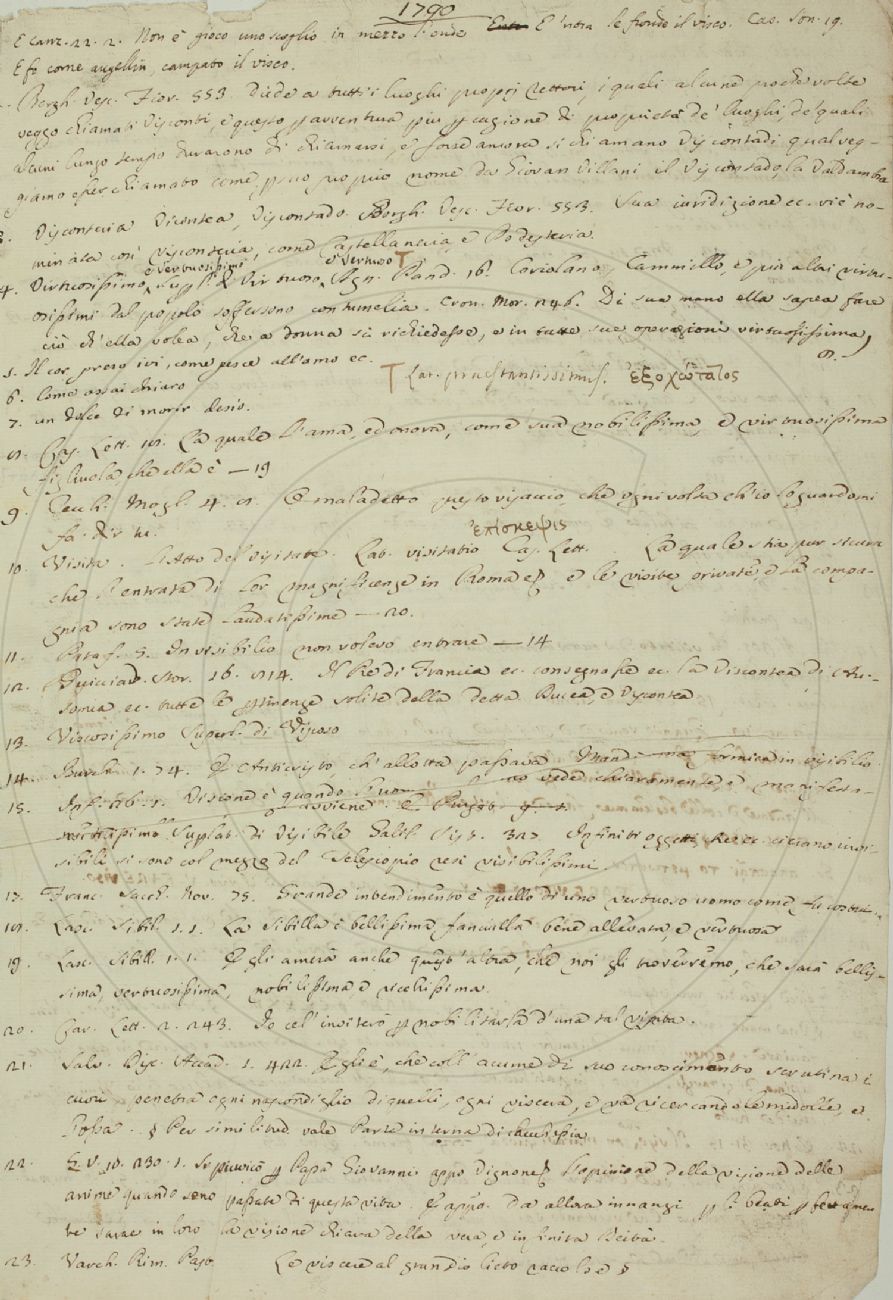 1790
E canz. 22. 2. Non è gioco uno scoglio in mezzo l'onde E 'ntra le fronde il visco. Cas. Son. 19.
E fo come augellin, campato il visco.
Borgh. Vesc. Fior. 553. Diede a tutti i luoghi proprj Rettori, i quali alcune poche volte
veggo chiamati Visconti, e questo p avventura più p cagione di proprietà de' luoghi, de' quali
alcuni lungo tempo durarono di chiamarsi, e forse ancora si chiamano Viscontadi, qual veg-
giamo esser chiamato come p suo proprio nome da Giovan Villani il Viscontado la Valdambra
3. Visconteria Viscontea, Viscontado. Borgh. Vesc. Fior. 553. Sua iuridizione ec. viè no-
minata così Visconteria, come Castellaneria, e Podesteria.
e vertuosissimi e vertuoso T
4. Virtuosissimo, Suppl. di Virtuoso, Agn. Pand. 16. Coriolano, Cammillo, e più altri virtu-
osissimi dal popolo soffersono contumelia. Cron. Mor. 246. Di sua mano ella sapea fare
ciò ch'ella volea, che a donna si richiedesse, e in tutte sue operazioni virtuosissima
5. Il cor preso ivi, come pesce all'amo ec.
T Lat. praestantissimus. ἐξοχώτατος
6. Come assai chiaro
7. un dolce di morir desio.
8. Cas. Lett. 18. La quale l'ama, ed onora, come sua nobilissima, e virtuosissima
figliuola, che ella è — 19
9. Cecch. Mogl. 4. 8. E maladetto questo visaccio, che ogni volta ch'io lo guardo mi
fa
ἐπίσκεψις
10. Visita. L'Atto del visitare. Lat. visitatio Cas. Lett. La quale stia pur sicura
che l'entrata di lor magnificenze in Roma e le visite private, e la compa-
gnia sono state laudatissime — 20.
11. Pataf. 5. In visibilio non volevo entrare — 14
12. Guicciard. Stor. 16. 814. Il Re di Francia ec. consegnasse ec. la Viscontea di Au-
sonia ec. tutte le ptinenze solite della detta Ducea, e Viscontea
13. Viscosissimo Superl. di Viscoso
14. Burch. 1. 74. E Anticristo, ch'allotta passava Mandò una formica in visibilio
15. Viscone è quando l'uom vede chiaramente, e manifesta-
avviene
Visibilissimo Suplat. di Visibile Galil Sist. 327. Infiniti oggetti che ec. ci erano invi-
sibili si sono col mezzo del Telescopio resi visibilissimi.
17. Franc. Sacch. Nov. 75. Grande intendimento è quello di uno vertuoso uomo come fu costui.
18. Lasc. Sibill. 1. 1. La Sibilla è bellissima fanciulla bene allevata, e vertuosa
19. Lasc. Sibill. 1. 1. Egli amerà anche quest'altra, che noi gli troverremo, che sarà bellis-
sima, vertuosissima, nobilissima e ricchissima.
20. Car. Lett. 2. 243. Io cel' inviterò p nobilitarla d'una tal visita.
21. Salv. Disc. Accad. 1. 422. Egli è, che coll' acume di suo conoscimento scrutina i
cuori, penetra ogni nascondiglio di quelli, ogni viscera, e va ricercando le midolle, e
l'ossa. § Per similitud. vale Parte interna di checchessia
22. G. V. 10. 230. 1. Si piuvicò p Papa Giovanni appo Vignone l'opinione della visione delle
anime quando sono passate di questa vita. E appo. Da allora innanzi p li beati pfettamen
te sarae in loro la visione chiara della vera, e infinita Deità.
23. Varch. Rim. Past. Le viscere al grandio lieto raccolse